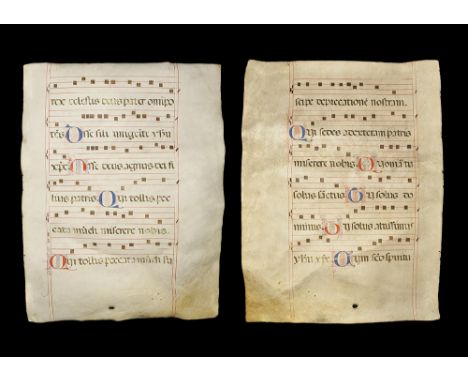 rex celestis deus pater omnipo
tens Dne fili unigenite yhu
xpe Dne deus agnus dei fi
lius patris Qui tollis pec
cata mudi miserere nobis
Qui tollis peccata mudi su
scipe deprecatione nostram.
Qui sedes ad dexteram patris
miserere nobis Qm tu
solus sanctus Tu solus do
minus Tu solus altissimus
yhu xpe Cum sco spiritu